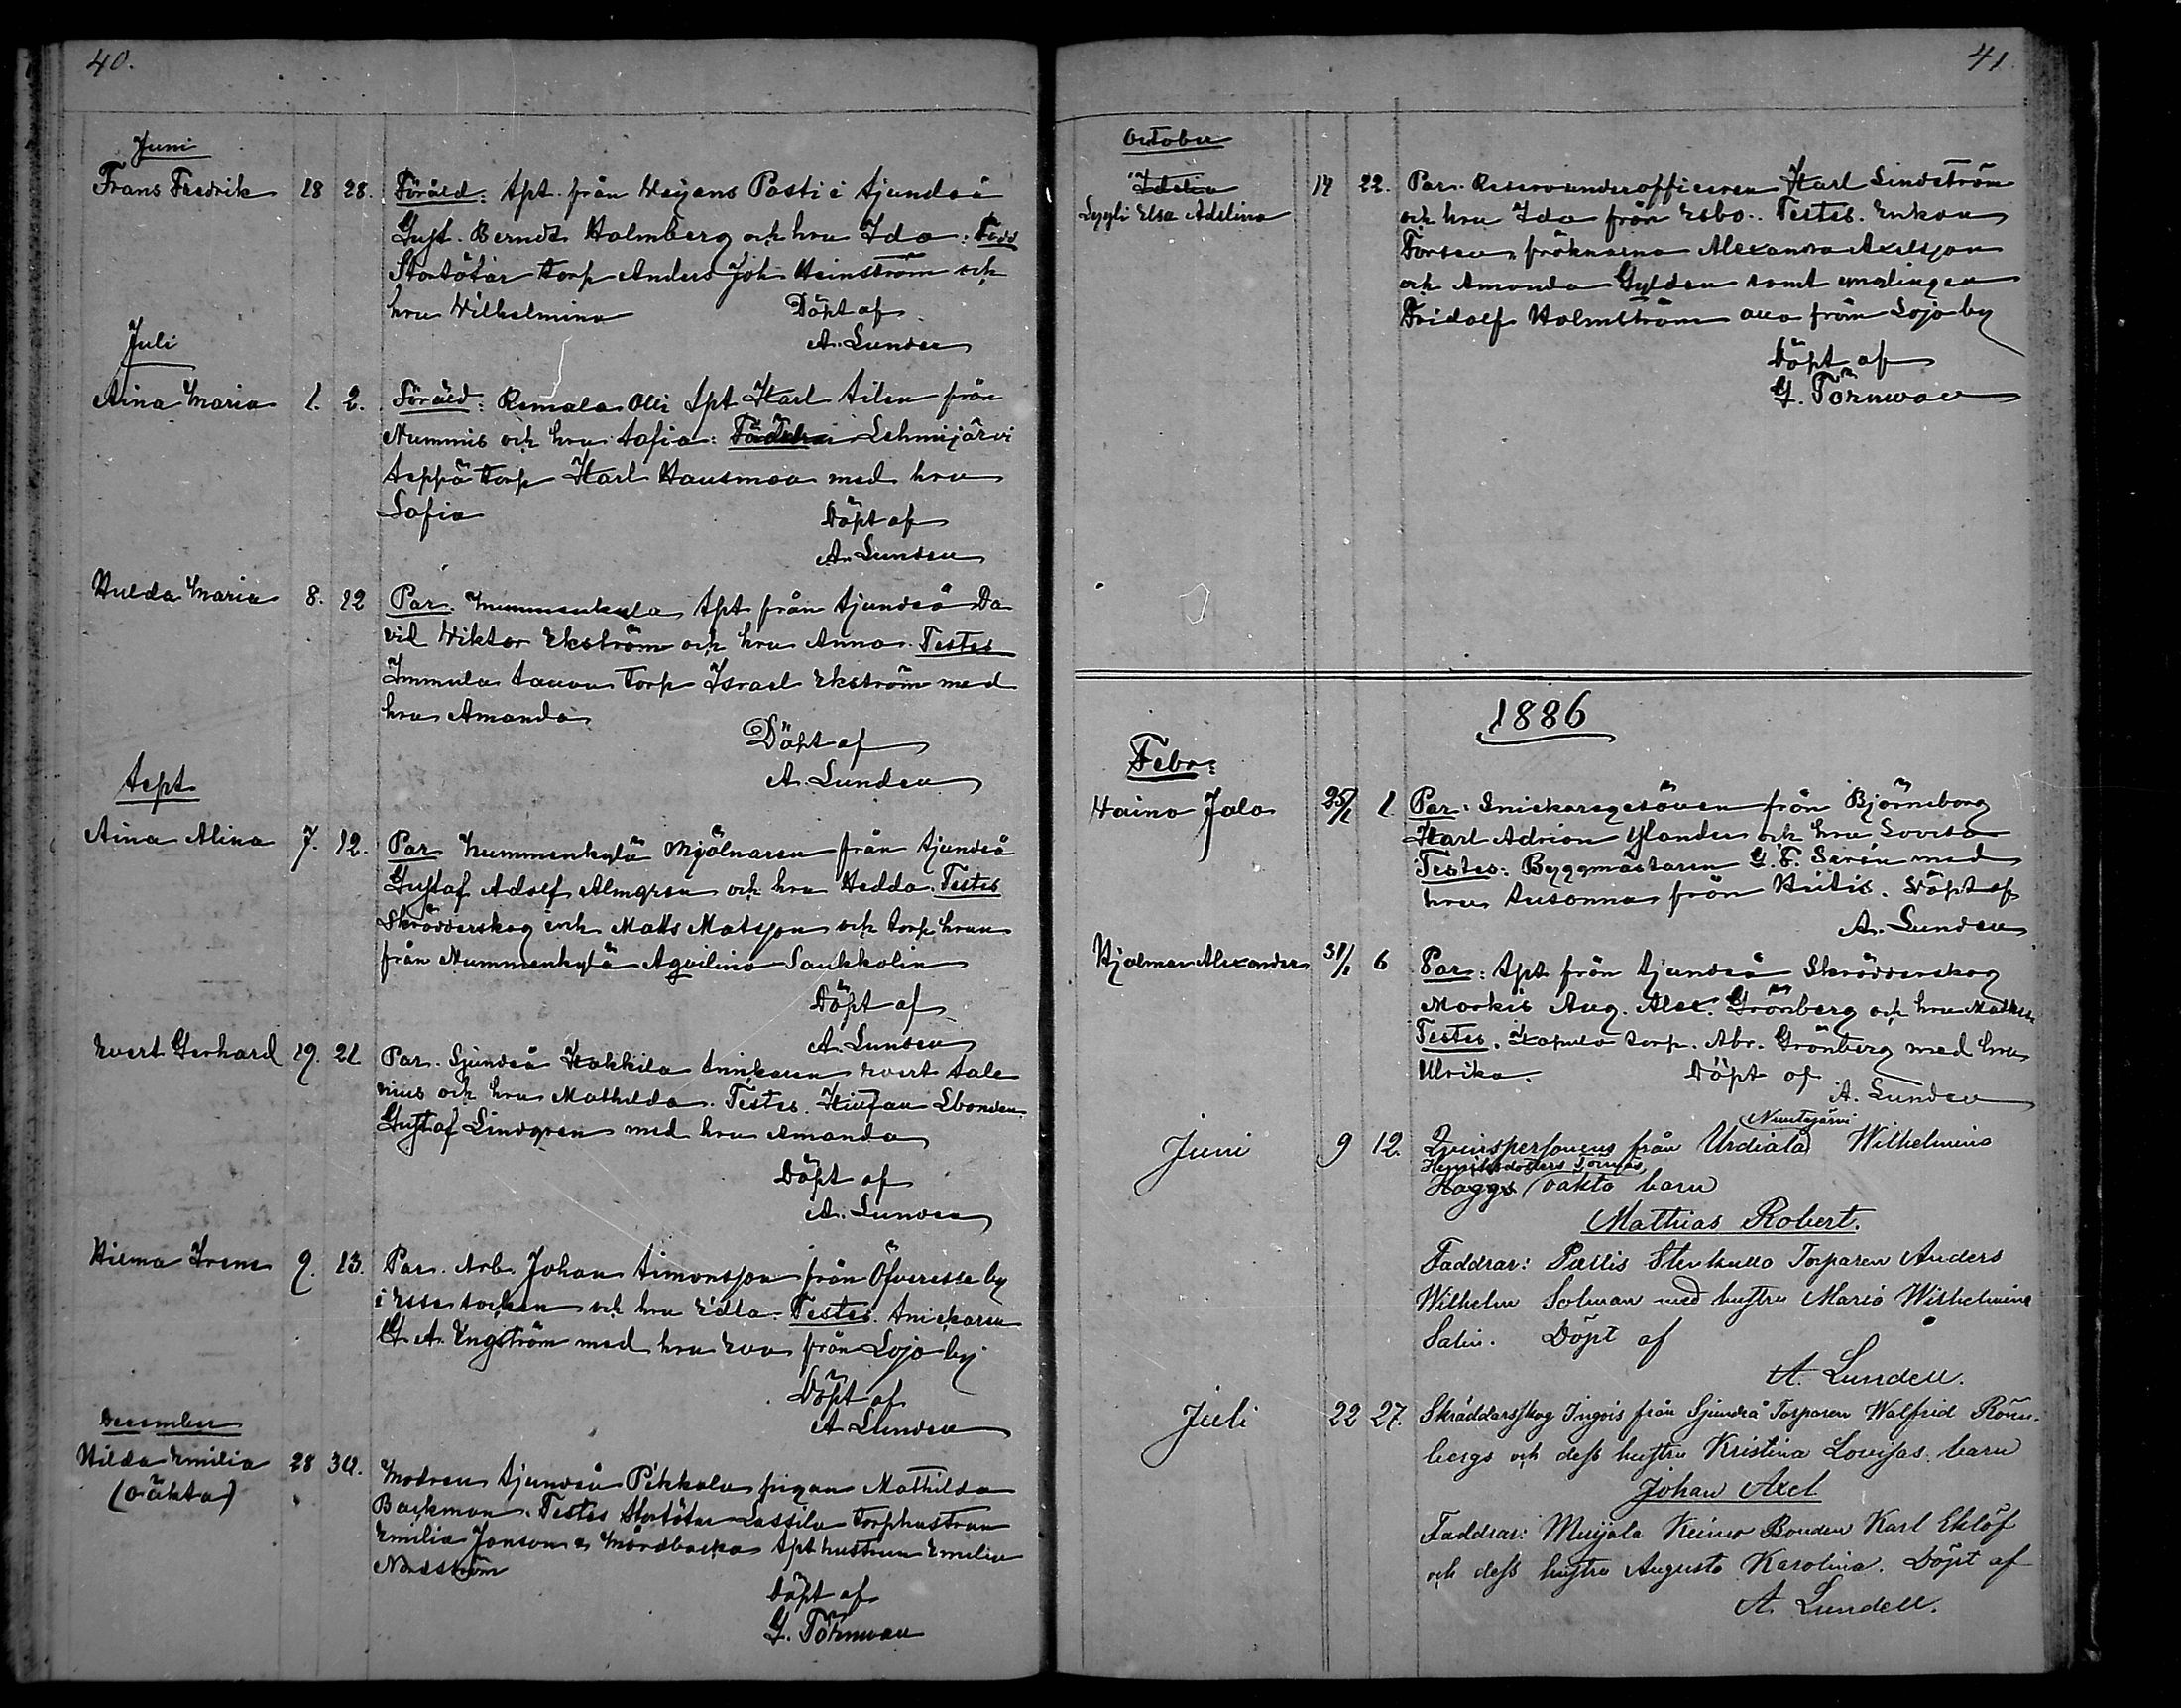 40.
Juni
Frans Fredrik 18 28. Föräld: Spt. från Weijans Pasti i Sjundeå
Gust. Berndt Holmberg och hru Ida: Fadd
Stortötar torp Anders Joh. Heinström och
hru Wilhelmina Döpt af
A. Lundell
Juli
Aina Maria 1. 2. Föräld: Remala Olli Spt Karl Ailen från
Nummis och hru Sofia: Lehmijärvi
Seppä torp Karl Hausmoa med hru
Sofia Döpt af
A. Lundell
Hulda Maria 8. 12 Par. Spt från Sjundeå Da
vid Wiktor Ekström och hru Anna. Testes
Immula torp Israel Ekström med
hru Amanda
Döpt af
A. Lundell
Sept.
Aina Alina 7. 12. Par Nummenkylä Mjölnaren från Sjundeå
Gustaf Adolf Almgren och hru Hedda. Testes
Skrädderskog inh Matts Matsson och torp hrun
från Nummenkylä Aqvilina Saukkolin
Döpt af
A. Lundell
Evert Gerhard 19. 21 Par. Sjundeå Kakkila Snickaren Evert Sale
nius och hru Mathilda. Testes. Bonden
Gustaf Lindgren med hru Amanda
Döpt af
A. Lundell
Hilma Irene 9. 13. Par. Arb. Johan Simonsson från Öfveresse by
i Esse socken och hru Edla. Testes. Snickaren
G. A. Engström med hru Eva från Lojo by
Döpt af
A Lundell
December
Hilda Emilia 28 30. Modren Sjundeå Pikkala pigan Mathilda
(oäkta) Backman. Testes Stortötar Lassila torphustrun
Emilia Jonson & Mårdbacka Spt hustrun Emilia
Nordström
Döpt af
G. Törnwall
41.
October
Idelia
Lyyli Elsa Adelina 14 22. Par. Reservunderofficeren Karl Lindström
och hru Ida från Esbo. Testes. Enkan
Forsell fröknarna Alexandra Axelsson
och Amanda Gyldén samt ynglingen
Fridolf Holmström alla från Lojo by
Döpt af
G. Törnwall
1886
Febr:
Waino Jalo 25/1 1. Par: Snickaregesällen från Björneborg
Karl Adrian Ylander och hru Lovisa
Testes: Byggmästaren G. F. Sirén med
hru Susanna från Hiitis. Döpt af
A. Lundell
Hjalmar Alexander 31/1 6 Par: Spt från Sjundeå Skrädderskog
Markis Aug. Alex. Grönberg och hru
Testes. torp. Abr. Grönberg med hru
Ulrika. Döpt af
A. Lundell
Nuutajärvi
Juni 9 12. Qvinspersonens från Urdiala Wilhelmina
Henriksdotters
Haggs oäkta barn
Mathias Robert.
Faddrar: Stenkulla Torparen Anders
Wilhelm Solman med hustru Maria Wilhelmina
Salin. Döpt af
A. Lundell.
Juli 22 27. Skräddarsskog Ingois från Sjundeå Torparen Walfrid Rönn-
bergs och dess hustru Kristina Lovisas barn
Johan Axel
Faddrar: Muijala Bonden Karl Eklöf
och dess hustru Augusta Karolina. Döpt af
A. Lundell.